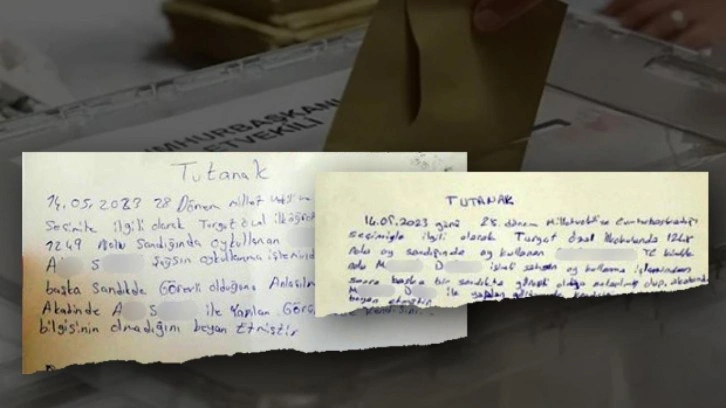 CUMHURBAŞKANI
LETVEKİLİ
Tutanak
14.05.2023 28 Dönem millet
Seçimite ilgili olarak Turgut özal ilköğre
1249 Nolu Sandığında oykullanan
A S şahsın oykullanma işlemind
başka Sandıkda Görevli olduğunu Anlaşılm
Akabinde A S ile Yapılan Görü
bilgisinin olmadığını beyan Etmiştir
TUTANAK
14.05.2023 günü 28. dönem Milletvekili ve Cumhurbaşkanlığı
seçimiyle ilgili olarak Turgut Özal İlkokulunda
Nolu oy sandığında oy kullanan TC kimlik
nolu M D isimli şahsın oy kullanma işleminden
sonra başka bir sandıkta görevli olduğu anlaşılmış olup, akabinde
M D ile yapılan
beyan etmiştir